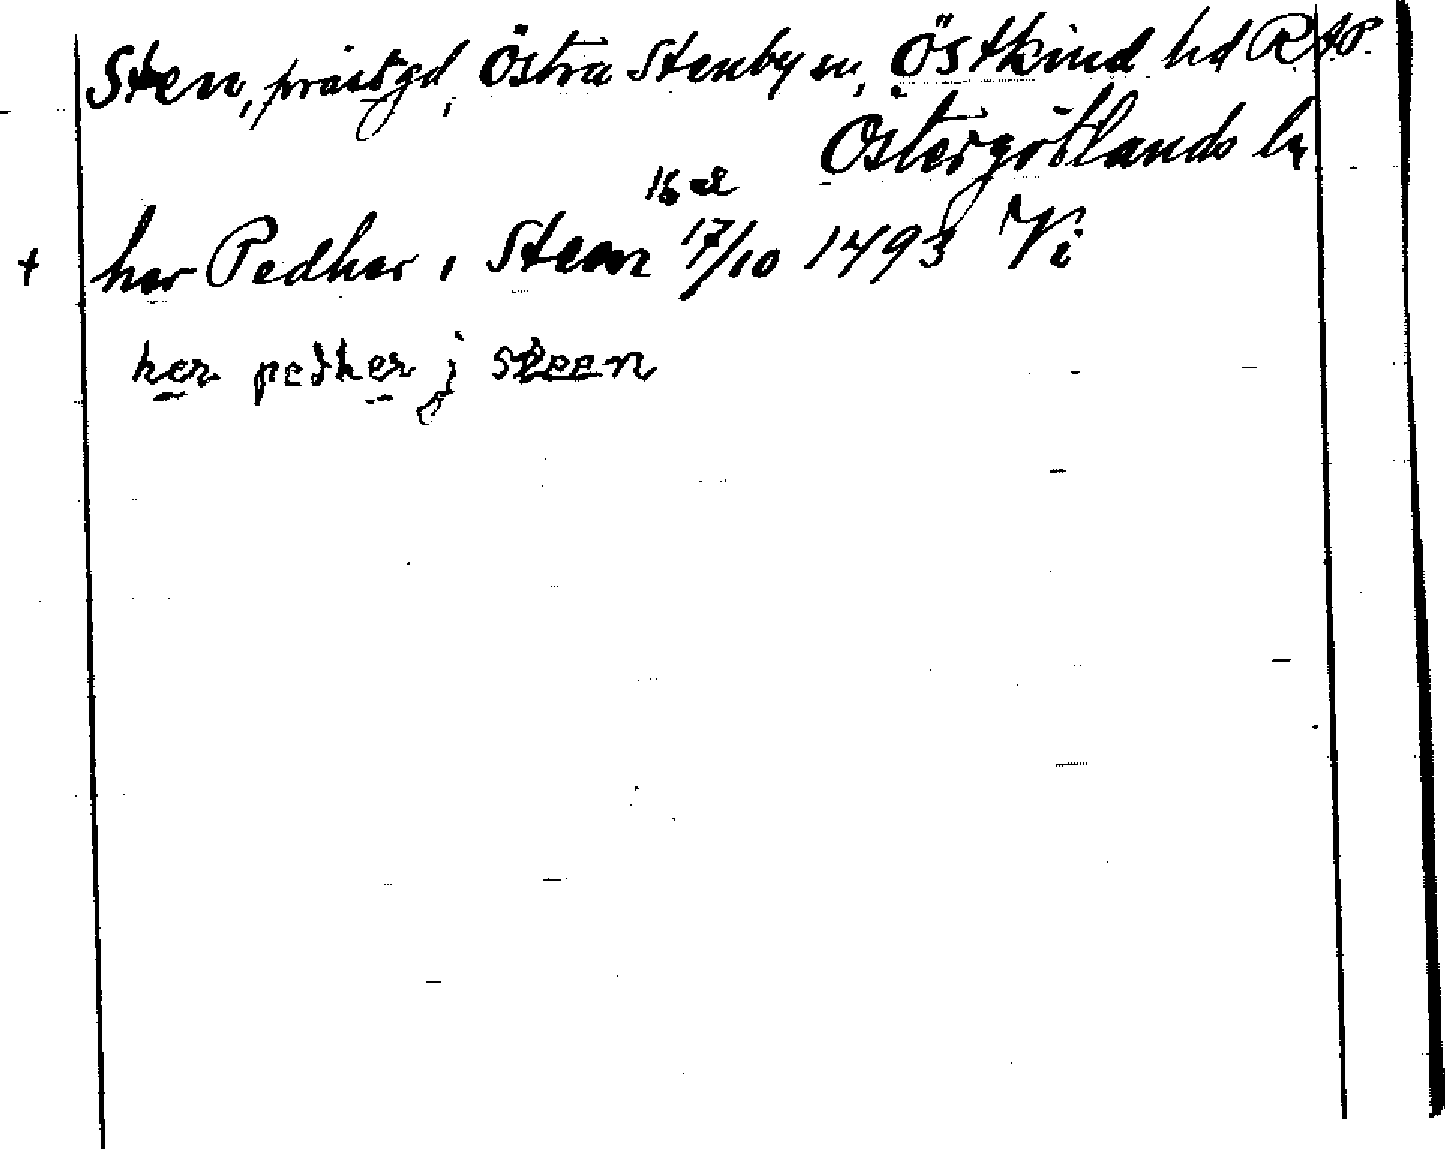 Sten, prästgd, Östra Stenby sn, Östkind hd RAP.
Östergötlands ln
16 el
+ her Pedher i Steen 17/10 1493 Vi
her pedher j steen